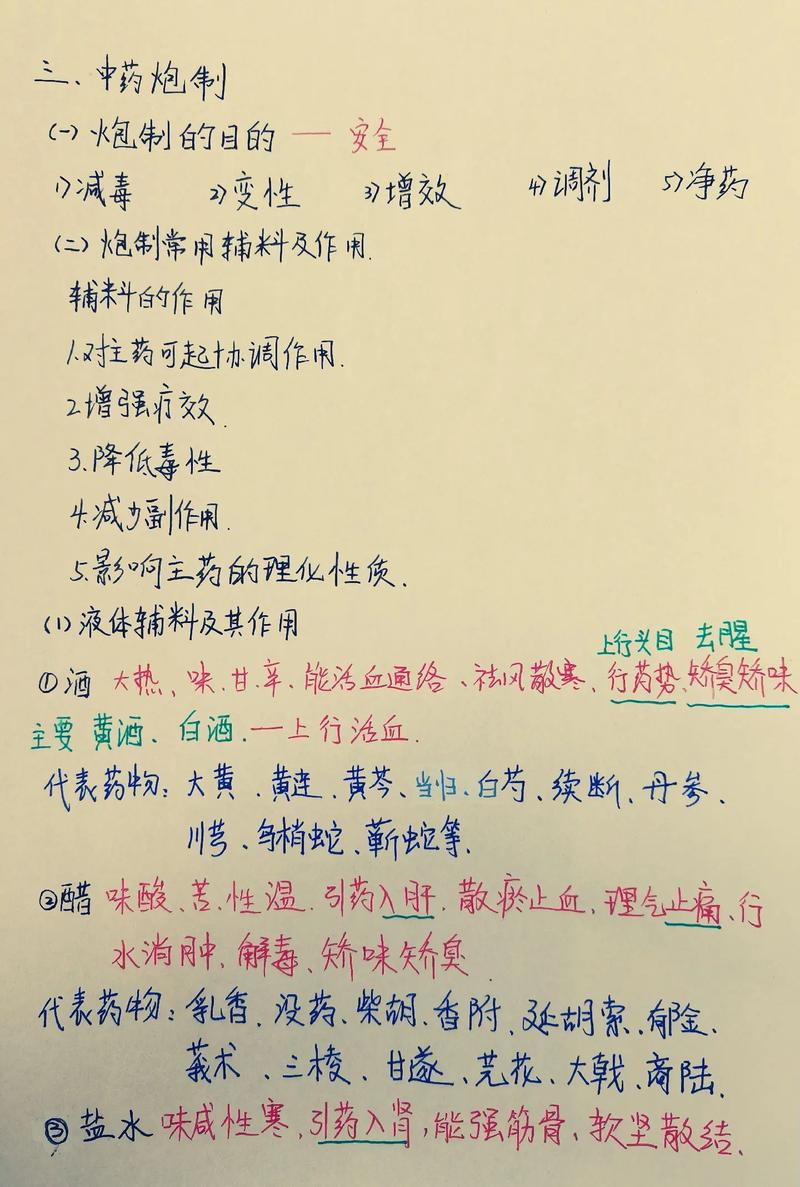 三、中药炮制
(一)炮制的目的 — 安全
1)减毒 2)变性 3)增效 4)调剂 5)净药
(二)炮制常用辅料及作用.
辅料的作用
1.对主药可起协调作用.
2.增强疗效.
3.降低毒性
4.减少副作用.
5.影响主药的理化性质.
(1)液体辅料及其作用
上行头目 去腥
①酒 大热、味甘、辛、能活血通络、祛风散寒、行药势、矫臭矫味
主要 黄酒、白酒.—上行活血.
代表药物:大黄、黄连、黄芩、当归、白芍、续断、丹参、
川芎、乌梢蛇、蕲蛇等.
②醋 味酸、苦、性温.引药入肝.散瘀止血、理气止痛、行
水消肿、解毒、矫味矫臭
代表药物:乳香、没药、柴胡、香附、延胡索、郁金、
莪术、三棱、甘遂、芫花、大戟、商陆.
③盐水 味咸性寒,引药入肾,能强筋骨、软坚散结.